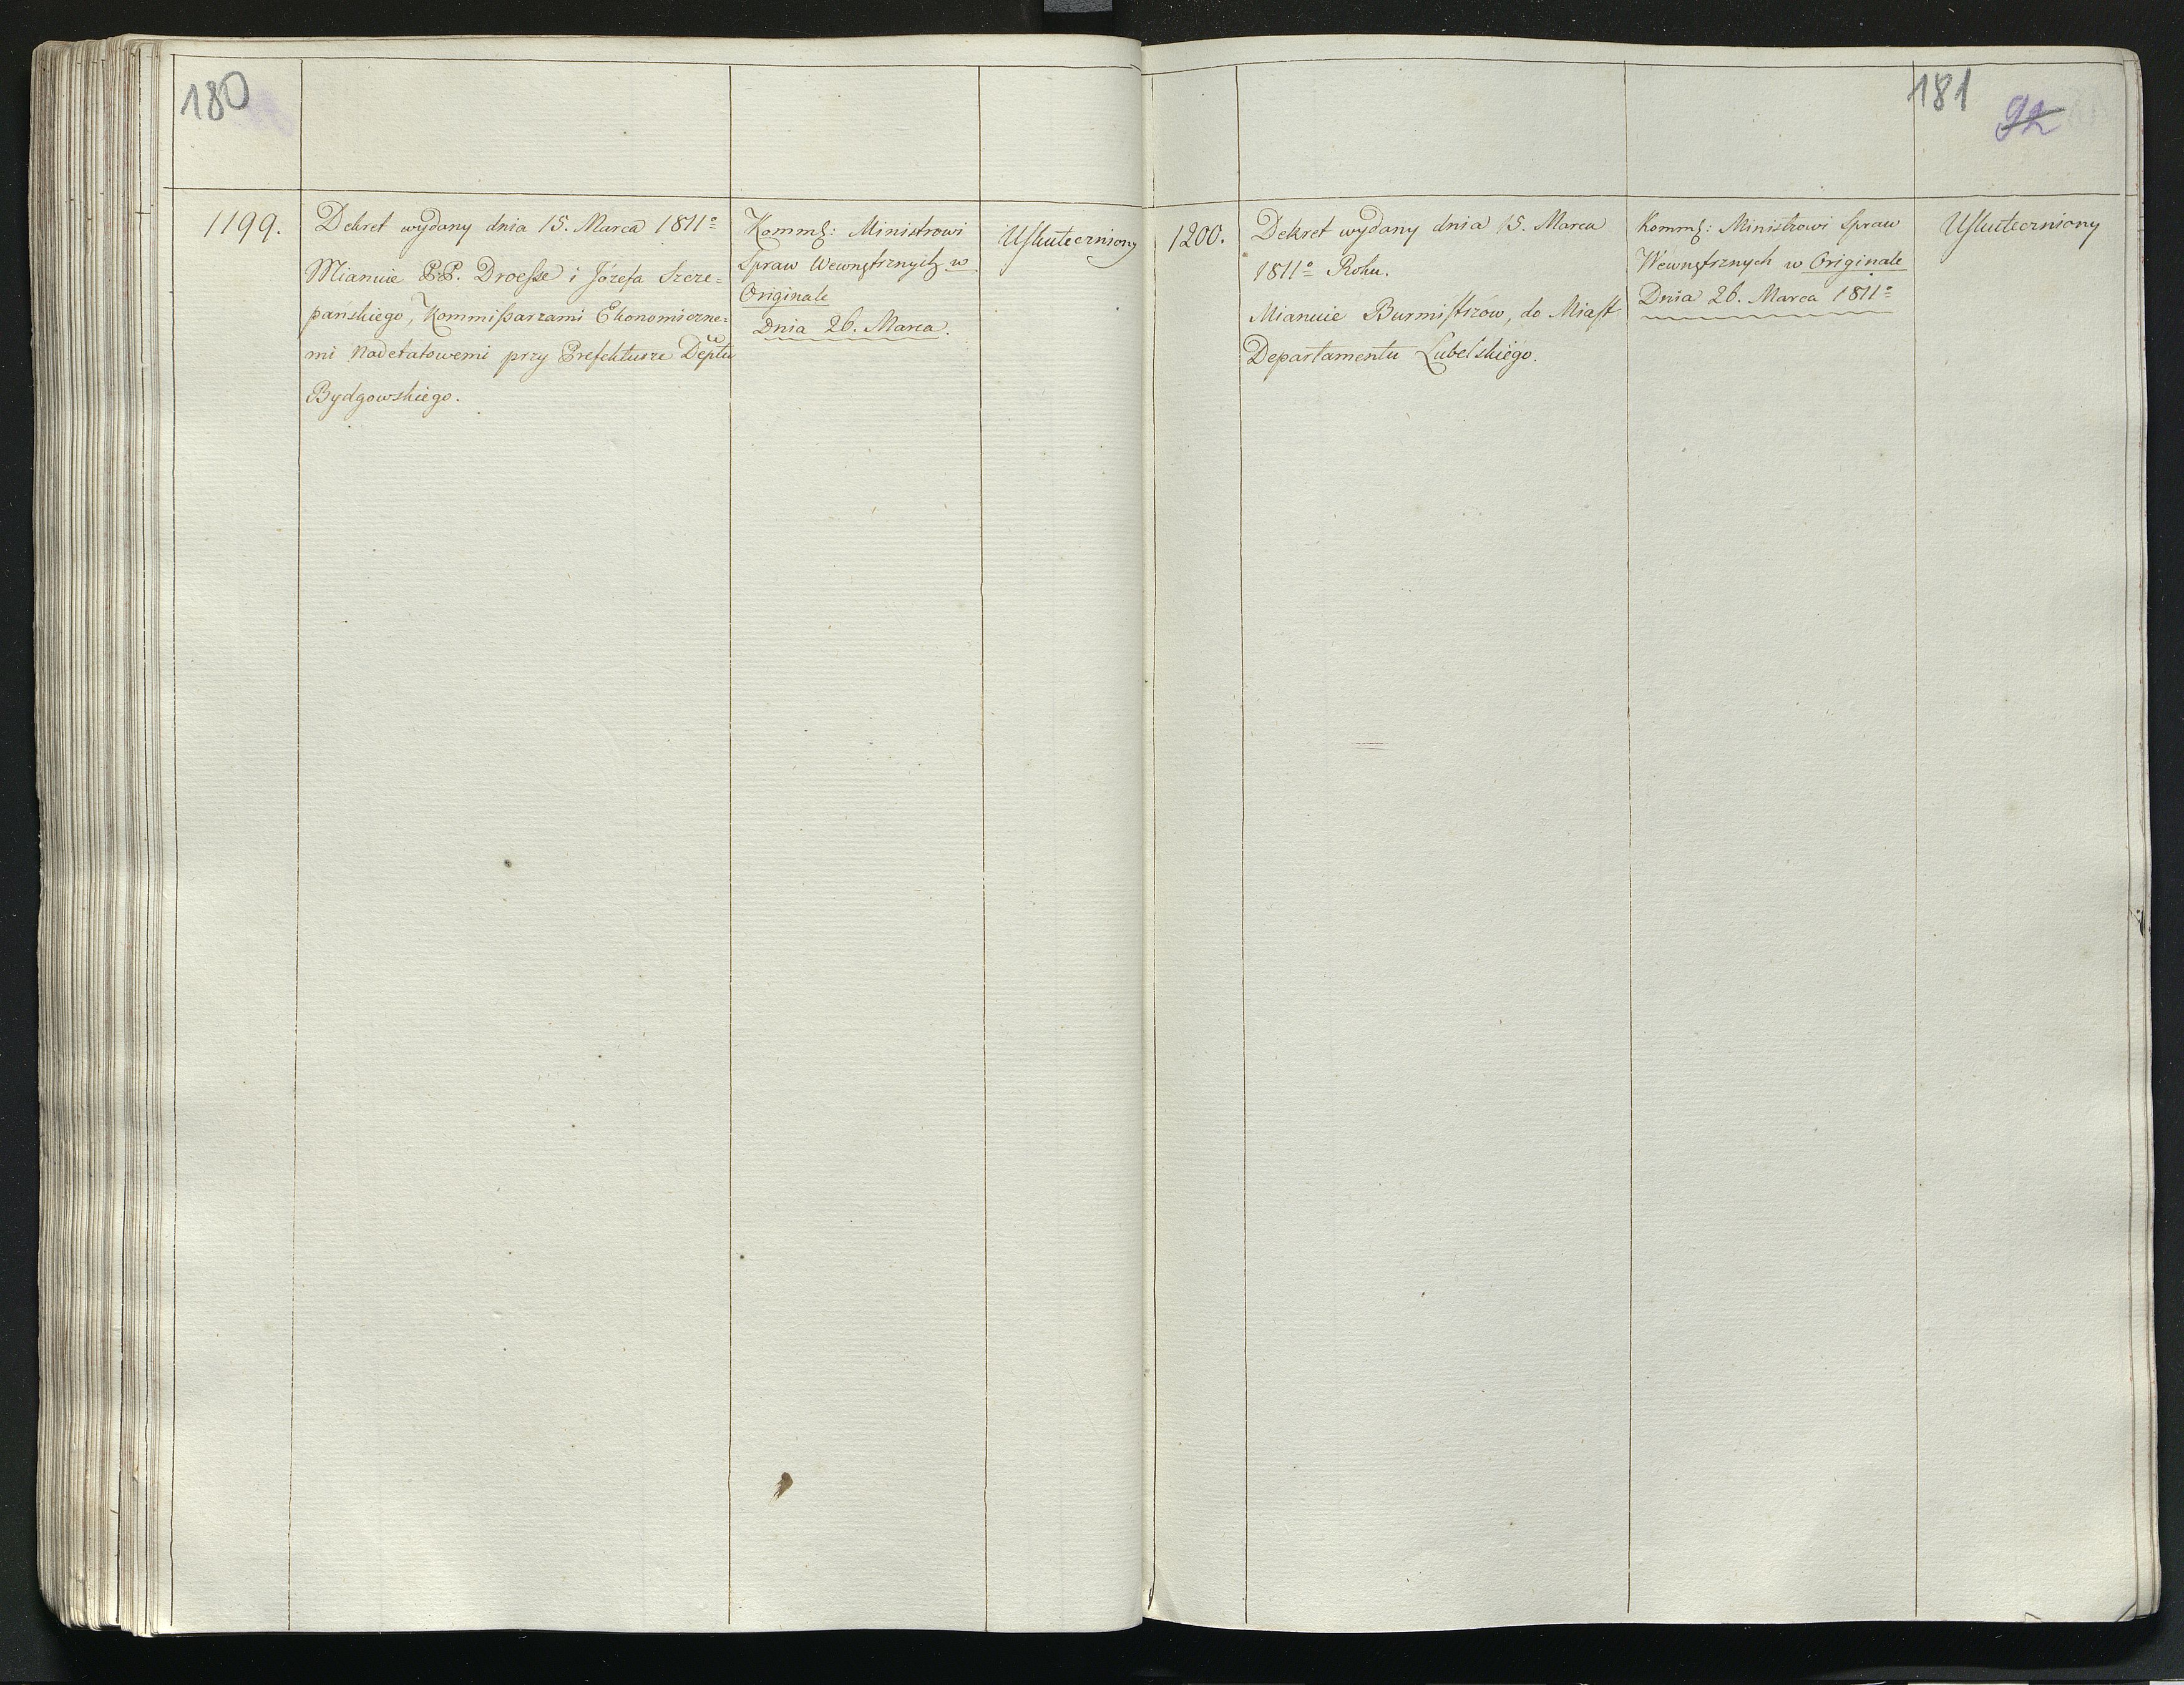 180
1199.
Dekret wydany dnia 15. Marca 1811º
Mianuie P.P. Droesse i Józefa Szcze=
pańskiego, Kommissarzami Ekonomiczne=
mi Nadetatowemi przy Prefekturze Deptu
Bydgowskiego.
Komm͠: Ministrowi
Spraw Wewnętrznych w
Originale
Dnia 26. Marca.
Uskuteczniony
181
92
1200.
Dekret wydany dnia 15. Marca
1811º Roku.
Mianuie Burmistrzów, do Miast
Departamentu Lubelskiego.
Komm͠: Ministrowi Spraw
Wewnętrznych w Originale
Dnia 26. Marca 1811º
Uskuteczniony